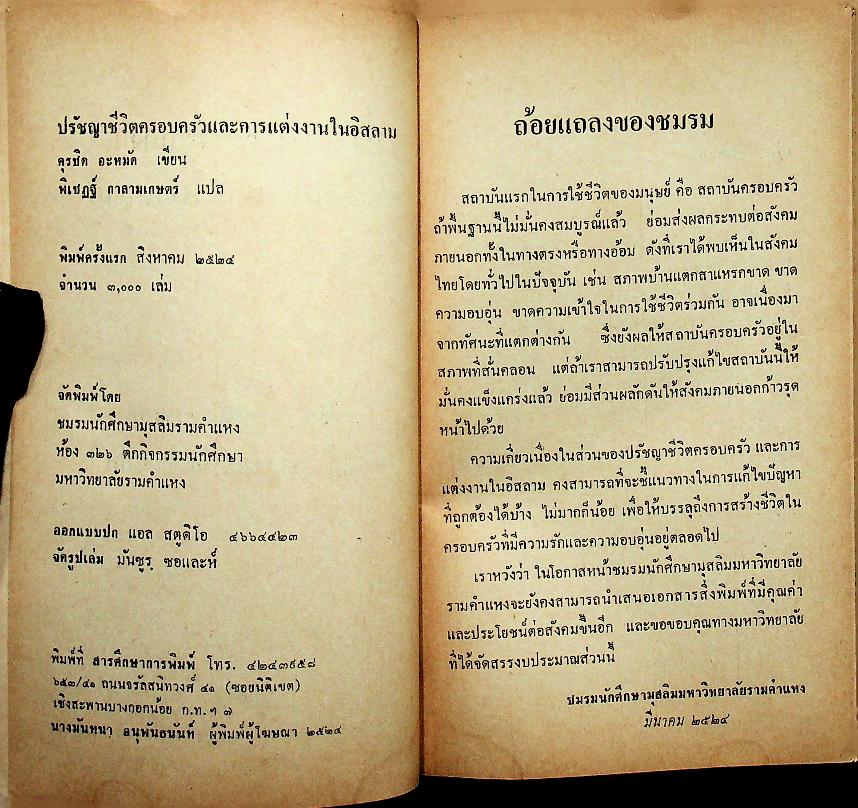 ปรัชญาชีวิตครอบครัวและการแต่งงานในอิสลาม
คุรชิด อะหมัด เขียน
พิเชฏฐ์ กาลามเกษตร์ แปล
พิมพ์ครั้งแรก สิงหาคม ๒๕๒๔
จำนวน ๓,๐๐๐ เล่ม
จัดพิมพ์โดย
ชมรมนักศึกษามุสลิมรามคำแหง
ห้อง ๓๒๖ ตึกกิจกรรมนักศึกษา
มหาวิทยาลัยรามคำแหง
ออกแบบปก แอล สตูดิโอ ๔๖๖๔๕๒๓
จัดรูปเล่ม มันซูรฺ ซอและห์
พิมพ์ที่ สารศึกษาการพิมพ์ โทร. ๔๒๔๓๙๕๘
๖๕๓/๔๑ ถนนจรัลสนิทวงศ์ ๔๑ (ซอยนิติเขต)
เชิงสะพานบางกอกน้อย ก.ท.ฯ ๗
นางมันทนา อนุพันธนันท์ ผู้พิมพ์ผู้โฆษณา ๒๕๒๔
ถ้อยแถลงของชมรม
สถาบันแรกในการใช้ชีวิตของมนุษย์ คือ สถาบันครอบครัว
ถ้าพื้นฐานนี้ไม่มั่นคงสมบูรณ์แล้ว ย่อมส่งผลกระทบต่อสังคม
ภายนอกทั้งในทางตรงหรือทางอ้อม ดังที่เราได้พบเห็นในสังคม
ไทยโดยทั่วไปในปัจจุบัน เช่น สภาพบ้านแตกสาแหรกขาด ขาด
ความอบอุ่น ขาดความเข้าใจในการใช้ชีวิตร่วมกัน อาจเนื่องมา
จากทัศนะที่แตกต่างกัน ซึ่งยังผลให้สถาบันครอบครัวอยู่ใน
สภาพที่สั่นคลอน แต่ถ้าเราสามารถปรับปรุงแก้ไขสถาบันนี้ให้
มั่นคงแข็งแกร่งแล้ว ย่อมมีส่วนผลักดันให้สังคมภายนอกก้าวรุด
หน้าไปด้วย
ความเกี่ยวเนื่องในส่วนของปรัชญาชีวิตครอบครัว และการ
แต่งงานในอิสลาม คงสามารถที่จะชี้แนวทางในการแก้ไขปัญหา
ที่ถูกต้องได้บ้าง ไม่มากก็น้อย เพื่อให้บรรลุถึงการสร้างชีวิตใน
ครอบครัวที่มีความรักและความอบอุ่นอยู่ตลอดไป
เราหวังว่า ในโอกาสหน้าชมรมนักศึกษามุสลิมมหาวิทยาลัย
รามคำแหงจะยังคงสามารถนำเสนอเอกสารสิ่งพิมพ์ที่มีคุณค่า
และประโยชน์ต่อสังคมขึ้นอีก และขอขอบคุณทางมหาวิทยาลัย
ที่ได้จัดสรรงบประมาณส่วนนี้
ชมรมนักศึกษามุสลิมมหาวิทยาลัยรามคำแหง
มีนาคม ๒๕๒๔